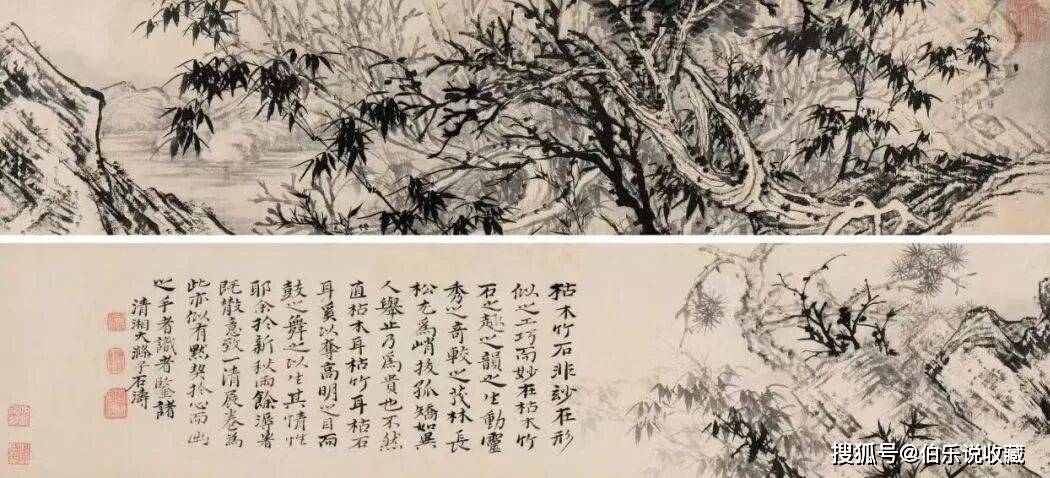 枯木竹石非妙在形
似之工巧而妙在枯木竹
石之趣之韻之生動靈
秀之奇較之茂林長
松尤為峭拔孤矯如異
人舉止乃為貴也不然
直枯木耳枯竹耳枯石
耳奚以奪高明之目而
鼓之舞之以生其情性
耶余於新秋雨餘溽暑
既散意致一清展卷為
此亦似有默契於心而
之乎者識者鑒諸
清湘大滌子石濤
搜狐号@伯乐说收藏